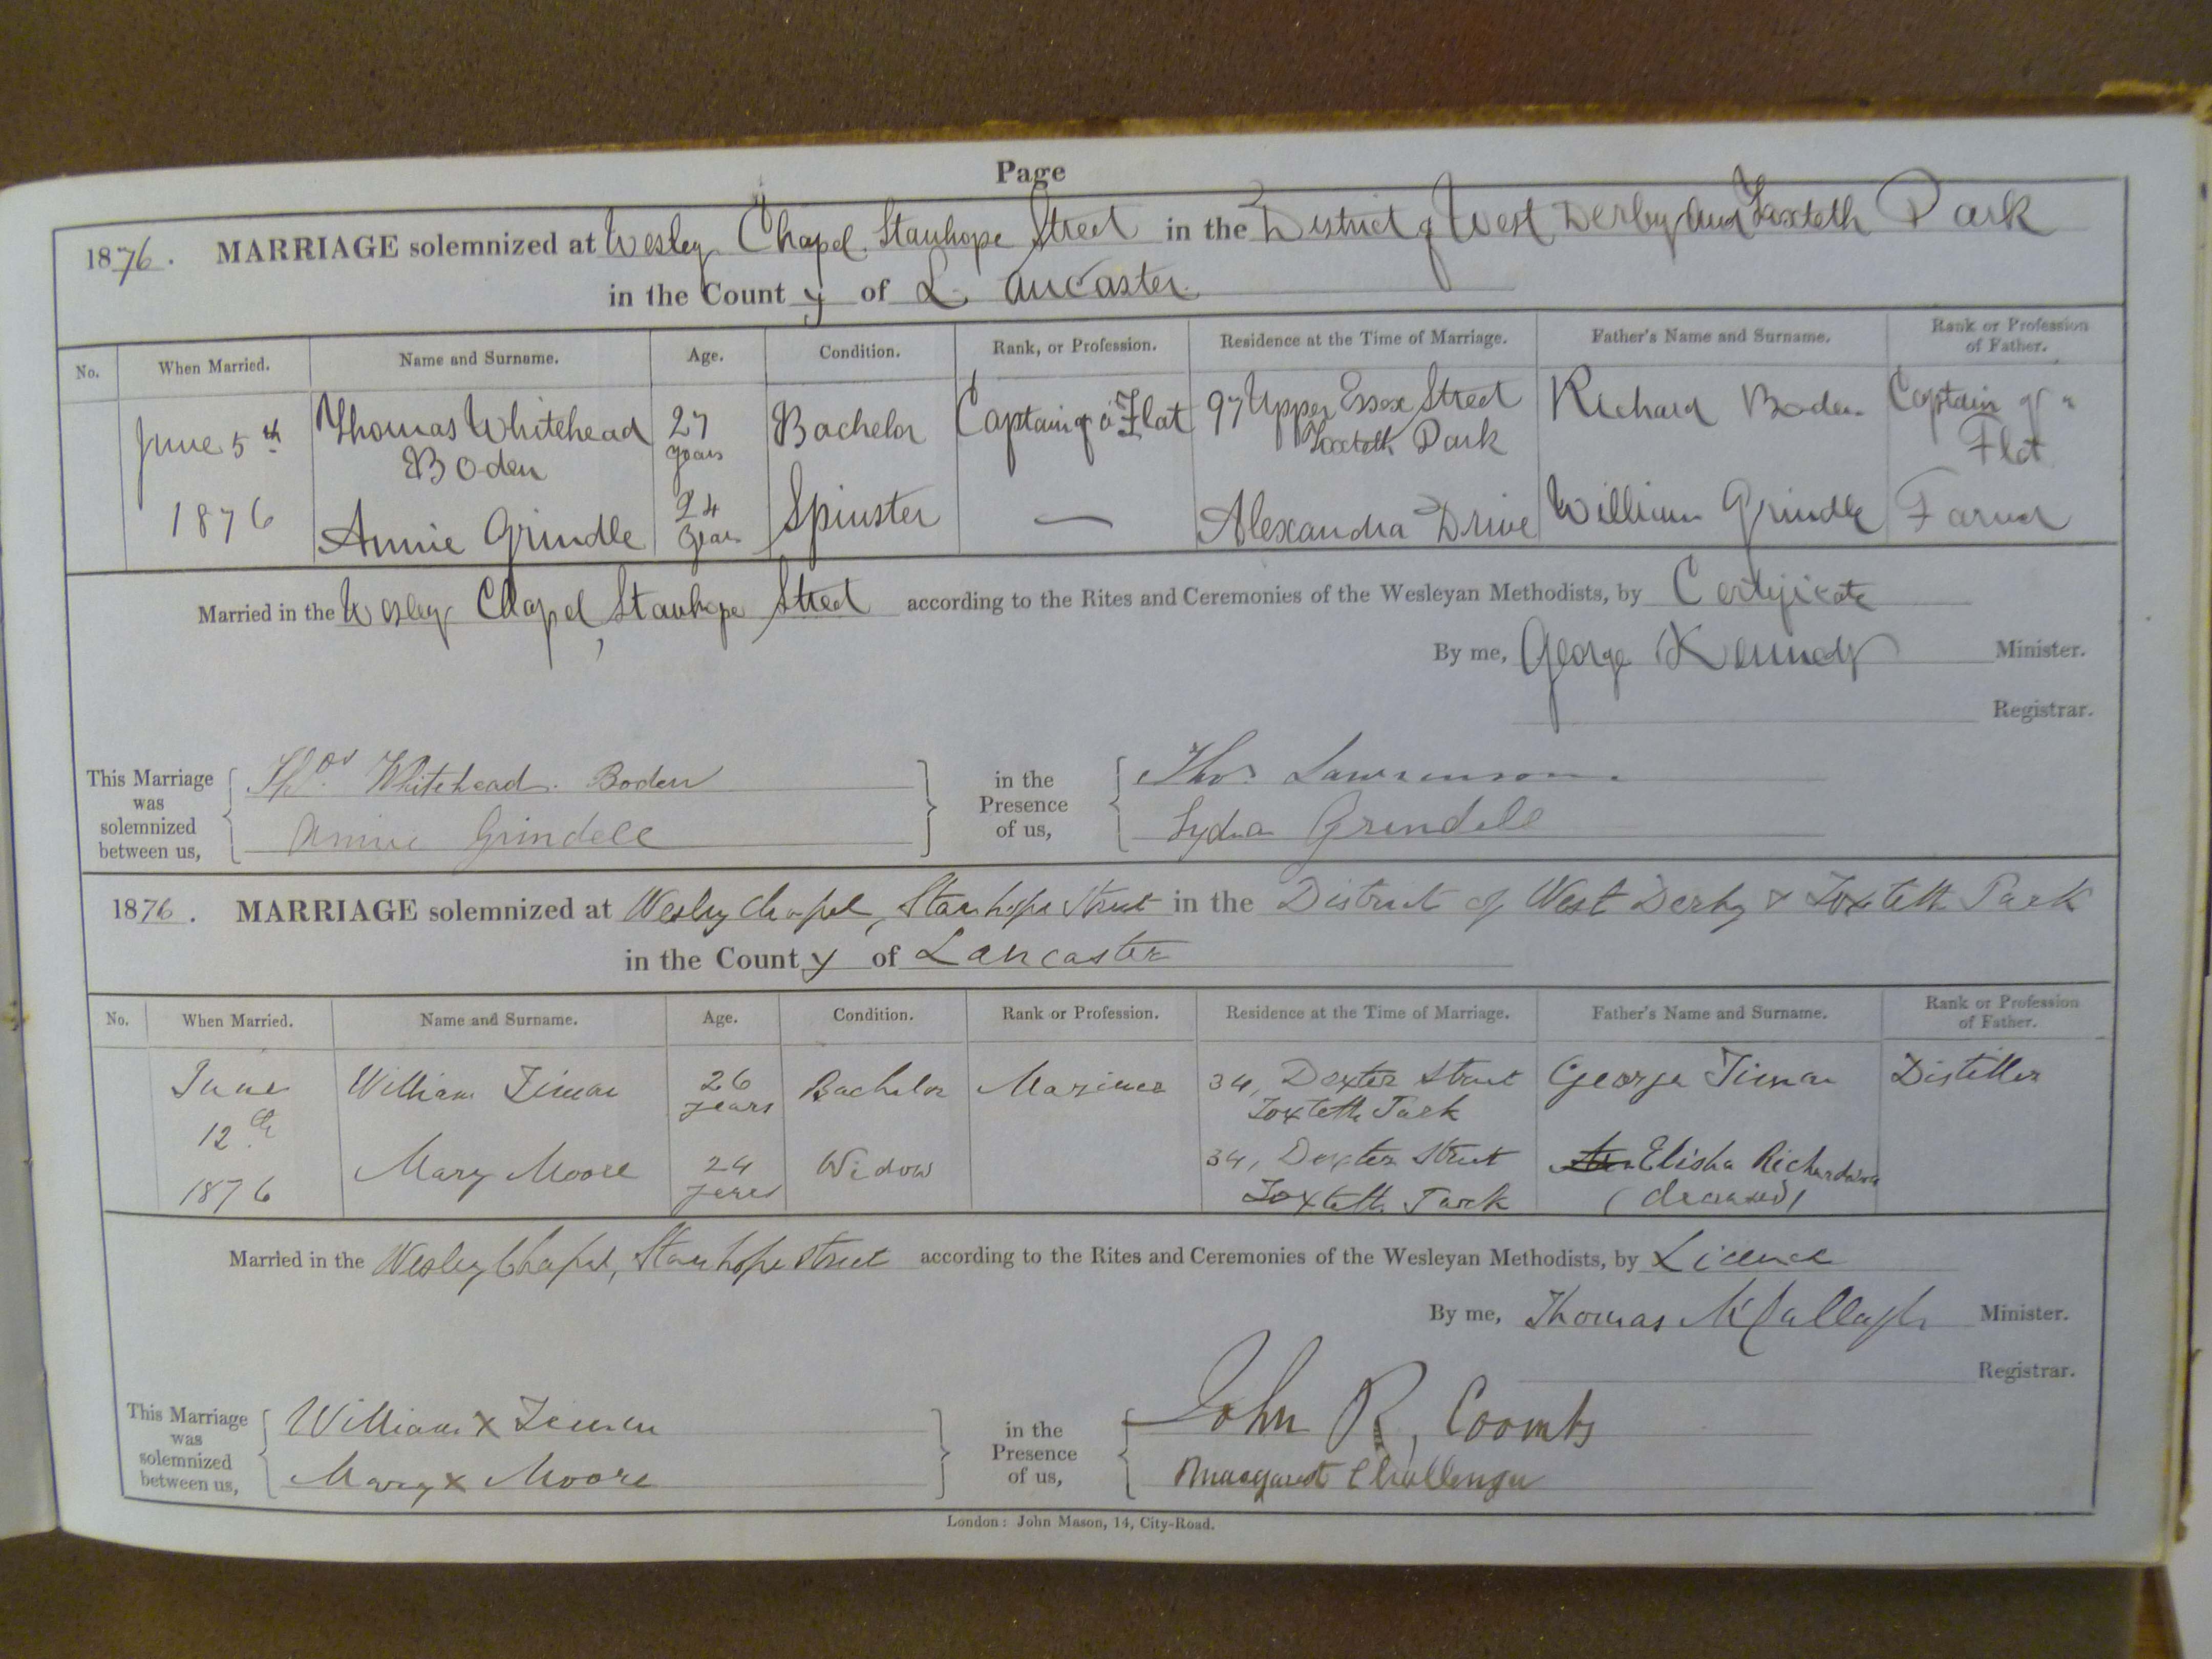 Page
1876. MARRIAGE solemnized at Wesley Chapel Stanhope Street in the District of West Derby and Toxteth Park
in the County of Lancaster
No. When Married. Name and Surname. Age. Condition. Rank, or Profession. Residence at the Time of Marriage. Father's Name and Surname. Rank or Profession of Father.
June 5th Thomas Whitehead 27 Bachelor Captain of a Flat 97 Upper Essex Street Richard Boden Captain of a
Boden years Toxteth Park Flat
1876 Annie Grindle 24 years Spinster — Alexandra Drive William Grindle Farmer
Married in the Wesley Chapel, Stanhope Street according to the Rites and Ceremonies of the Wesleyan Methodists, by Certificate
By me, George Kennedy Minister.
Registrar.
This Marriage was solemnized between us, Thos Whitehead Boden in the Presence of us, Thos Lawrenson
Annie Grindell Lydia Grindell
1876. MARRIAGE solemnized at Wesley Chapel, Stanhope Street in the District of West Derby & Toxteth Park
in the County of Lancaster
No. When Married. Name and Surname. Age. Condition. Rank or Profession. Residence at the Time of Marriage. Father's Name and Surname. Rank or Profession of Father.
June William 26 Bachelor Mariner 34, Dexter Street George Distiller
12th years Toxteth Park
1876 Mary Moore 24 Widow 34, Dexter Street Elisha Richardson
years Toxteth Park (deceased)
Married in the Wesley Chapel, Stanhope Street according to the Rites and Ceremonies of the Wesleyan Methodists, by Licence
By me, Thomas McCullagh Minister.
Registrar.
This Marriage was solemnized between us, William x in the Presence of us, John R, Coombs
Mary x Moore Margaret Challenger
London: John Mason, 14, City-Road.